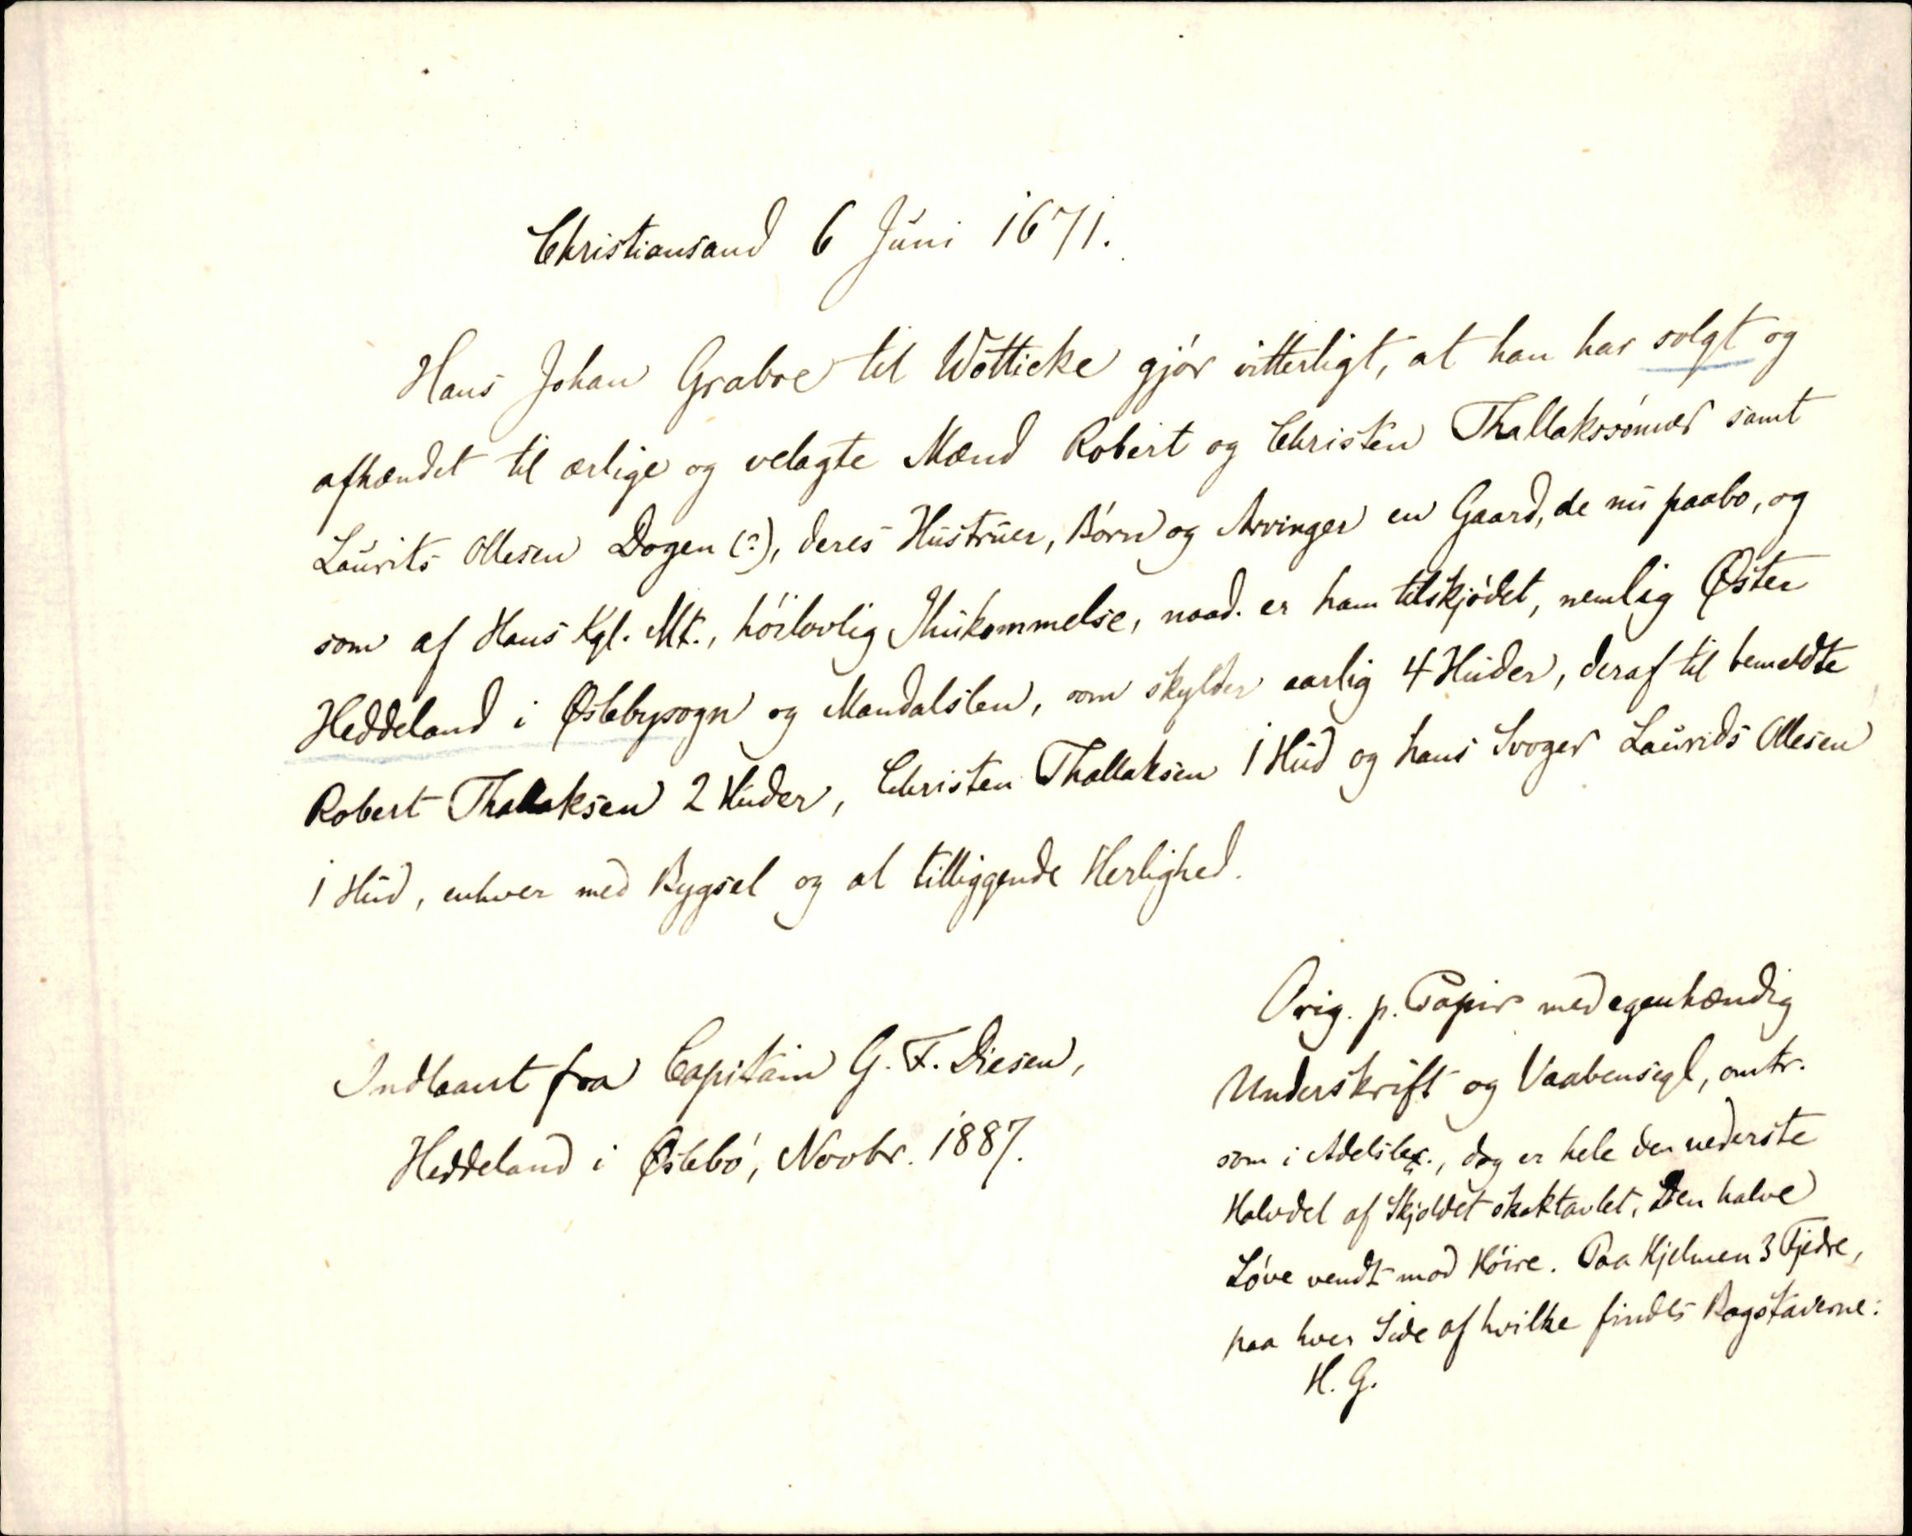 Christiansand 6 Juni 1671.
Hans Johan Graboe til Wotticke gjör vitterligt, at han har solgt og
afhændet til ærlige og velagte Mænd Robert og Christen Thallakssönner samt
Laurits Ollesen Dogen (?), deres Hustruer, Börn og Arvinger en Gaard, de nu paabo, og
som af Hans Kgl. Mt., höilovlig Ihukommelse, naad. er ham tilskjödet, nemlig Øster
Heddeland i Øslebysogn og Mandalslen, som skylder aarlig 4 Huder, deraf til bemeldte
Robert Thallaksen 2 Huder, Christen Thallaksen 1 Hud og hans Svoger Laurids Ollesen
1 Hud, enhver med Bygsel og al tilliggende Herlighed.
Indlaant fra Capitain G. F. Diesen,
Heddeland i Øslebö, Novbr. 1887.
Orig. p. Papir med egenhændig
Underskrift og Vaabensegl, omtr.
som i Adelslex., dog er hele den nederste
Halvdel af Skjoldet skaktavlet, Den halve
Löve vendt mod Höire. Paa Hjelmen 3 Fjedre,
paa hver Side af hvilke findes Bogstaverne:
H. G.